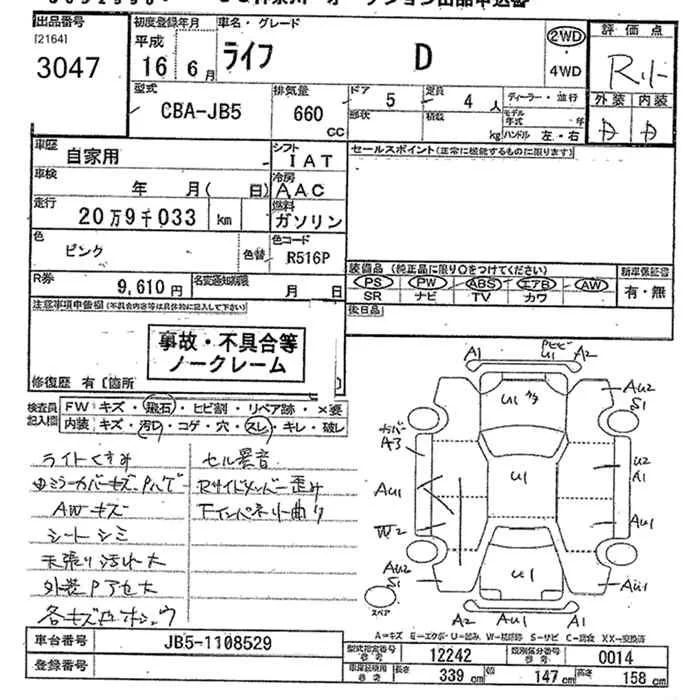 出品番号
[2164]
3047
初度登録年月
平成
16 6月
車名・グレード
ライフ D
2WD
4WD
評価点
R
外装 内装
型式
CBA-JB5
排気量
660
CC
ドア
5
定員
4 人
ディーラー・並行
形状
積載
kg
モデル年式 年
ハンドル 左・右
車歴
自家用
シフト
IAT
セールスポイント(正常に機能するものに限ります)
車検
年 月( 日)
冷房
AAC
走行
20万9千033 km
燃料
ガソリン
色
ピンク
色替
色コード
R516P
装備品 (純正品に限り〇をつけてください)
新車保証書
PS PW ABS エアB AW
有・無
SR ナビ TV カワ
R券
9,610 円
名変通知期限
月 日
後日品
注意事項申告欄(年具合内容等は具体的に記入して下さい)
事故・不具合等
ノークレーム
修復歴 有〔箇所
検査員
記入欄
FW キズ・飛石・ヒビ割・リペア跡・×要
内装 キズ・汚れ・コゲ・穴・スレ・キレ・破レ
ライトくすみ
セル異音
Rサイドメンバー歪み
AWキズ
下インパネリ曲り
シートシミ
天張り汚れ大
外装Pアセ大
A1
U1
A2
U1
AU2
S1
カバ
A3
U2
A1
AU1
U1
W2
AU1
AU2
S1
U1
AU1
スペア
A2
AU1
A1
A=キズ E=エクボ・U=凹み W=補修跡 S=サビ C=腐食 XX=交換済
車台番号
JB5-1108529
登録番号
型式指定番号
参考
12242
類別区分番号
参考
0014
長さ
339 cm
幅
147 cm
高さ
158 cm